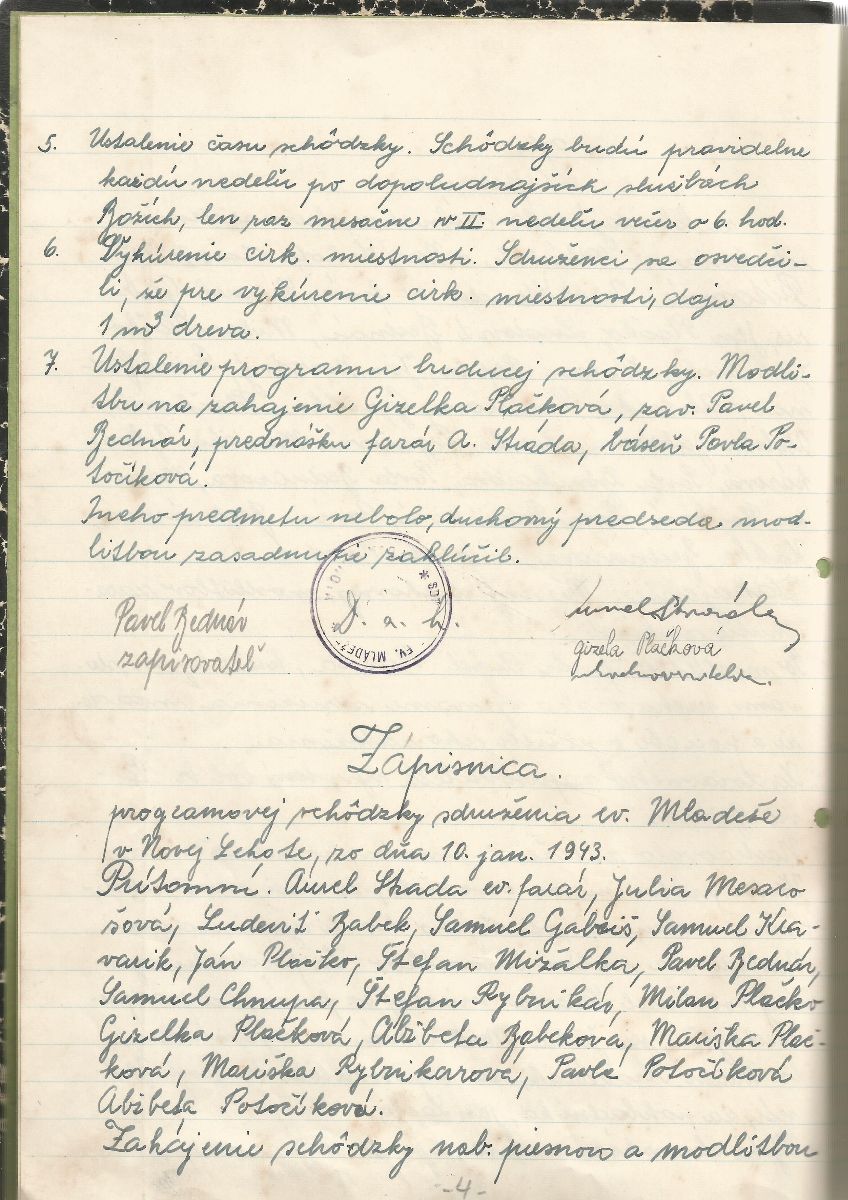 5. Ustalenie času schôdzky. Schôdzky budú pravidelne
každú nedeľu po dopoludnajších službách
Božích, len raz mesačne v II. nedeľu večer o 6. hod.
6. Vykúrenie cirk. miestnosti. Sdruženci sa osvedči-
li, že pre vykúrenie cirk. miestnosti, dajú
1 m³ dreva.
7. Ustalenie programu buducej schôdzky. Modli-
tbu na zahajenie Gizelka Plačková, zav. Pavel
Bednár, prednášku farár A. Stráda, báseň Pavla Po-
točíková.
Ineho predmetu nebolo, duchovný predseda mod-
litbou zasadnutie zaklúčil.
D. a. h.
EV. MLÁDEŽE
Pavel Bednár
zapisovateľ
Gizela Plačková
Zápisnica.
programovej schôdzky sdruženia ev. Mladeže
v Novej Lehote, zo dňa 10. jan. 1943.
Prítomní. Aurel Strada ev. farár, Julia Mesaro
šová, Ludevit Babek, Samuel Gábriš, Samuel Kra-
varik, Ján Plačko, Štefan Mižálka, Pavel Bednár,
Samuel Chnupa, Štefan Rybnikár, Milan Plačko
Gizelka Plačková, Alžbeta Babeková, Mariška Plač-
ková, Mariška Rybnikarova, Pavla Potočíková
Alžbeta Potočíková.
Zahájenie schôdzky nab. piesnou a modlitbou
-4-